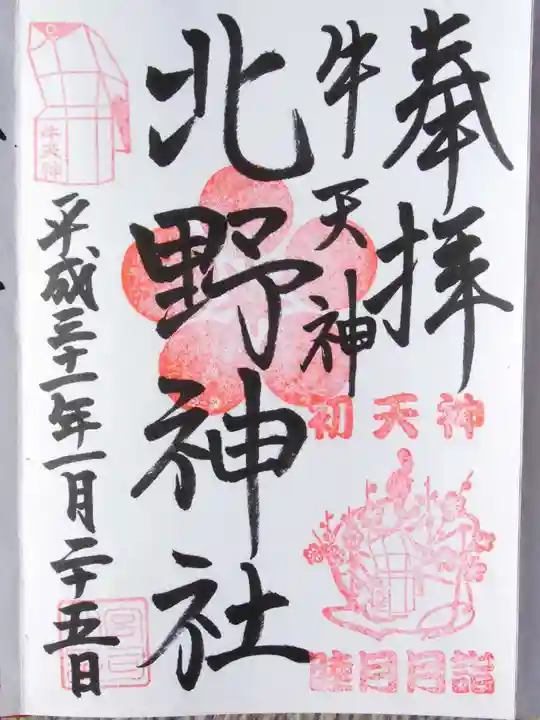 奉拝
牛天神
北野神社
平成三十一年一月二十五日
牛天神
初天神
睦月月詣